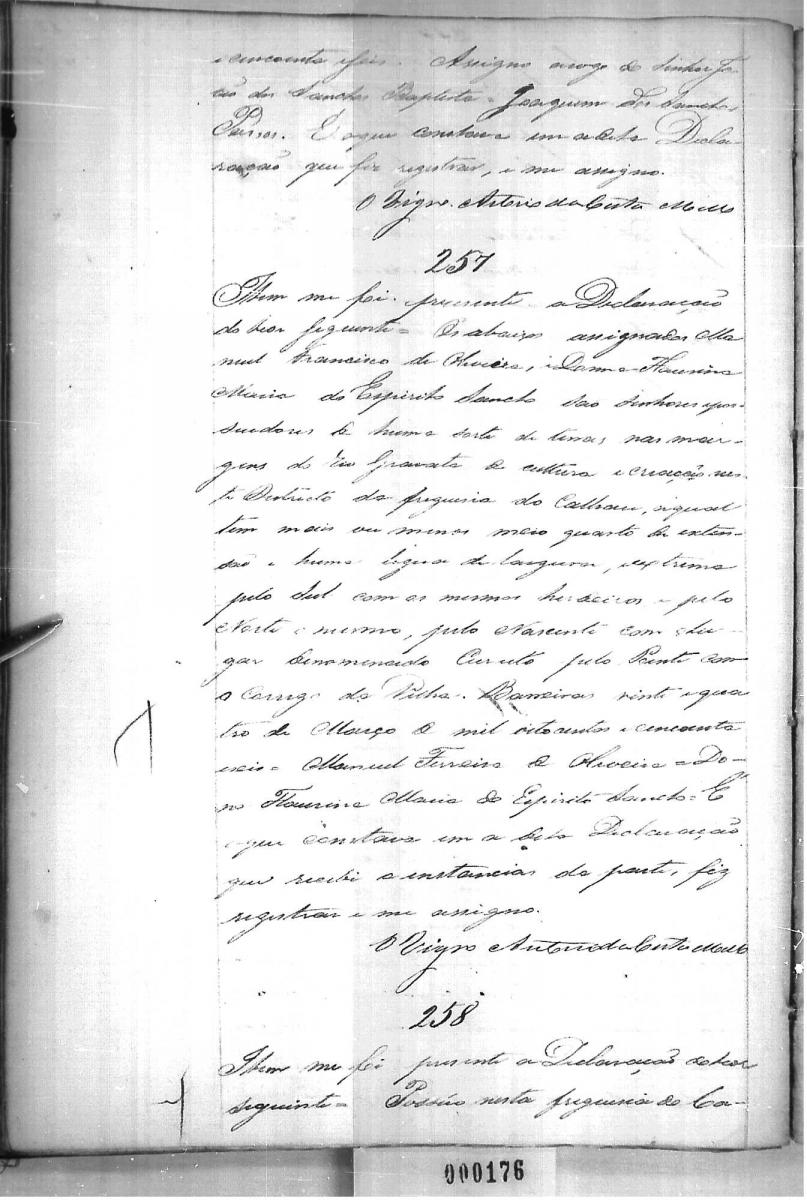 e cincoenta e seis. Assigno a rogo de Senhor Jo-
ão dos Sanctos Baptista = Joaquim dos Sanctos
Passos. E o que constava em a dita Decla-
ração que fiz registrar, e me assigno.
O Vigro. Antonio da Costa Mello
257
Item me foi presente a Declaração
do teor seguinte = Os abaixo assignados Ma-
nuel Francisco de Oliveira, e Donna Flaurina
Maria do Espirito Sancto são senhores e pos-
suidores de huma sorte de terras nas mar-
gens do Rio Gravata de cultura e criação nes-
te Districto da freguesia do Calhau, a qual
tem mais ou menos meio quarto de exten-
são e huma legua de largura, extrema
pelo Sul com os mesmos herdeiros e pelo
Norte o mesmo, pelo Nascente com o lu-
gar denominado Curuto pelo Poente com
o Corrego da Barreiras vinte e qua-
tro de Março de mil oitocentos e cincoenta
e seis = Manuel Ferreira de Oliveira = Do-
na Flaurina Maria do Espirito Sancto = E
o que constava em a dita Declaração
que recebi a instancias da parte, fiz
registrar e me assigno.
O Vigro Antonio da Costa Mello
258
Item me foi presente a Declaração do teor
seguinte = Possúo nesta freguesia do Ca-
000176